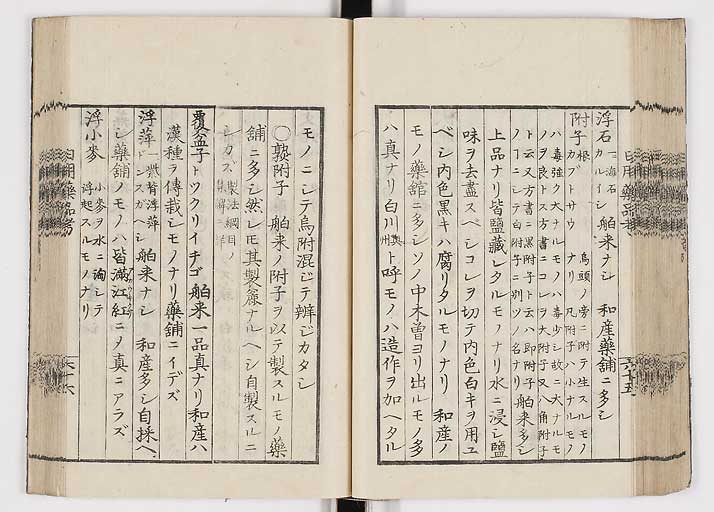 浮石 一 海石 カルイシ 舶来ナシ 和産藥舗ニ多シ
附子 根 カブトサウ ナリ 烏頭ノ旁ニ附テ生スルモノ 凡附子ハ小ナルモノ
ハ毒強ク大ナルモノハ毒少シ故ニ大ナルモ
ノヲ良トス方書ニコレヲ大附子又八角附子
ト云又方書ニ黒附子ト云ハ即附子 舶来多シ
ノヿニシテ白附子ニ對ツノ名ナリ
上品ナリ皆鹽藏シタルモノナリ水ニ浸シ鹽
味ヲ去盡スベシコレヲ切テ内色白キヲ用ユ
ベシ内色黒キハ腐リタルモノナリ 和産ノ
モノ藥舗ニ多シソノ中木曽ヨリ出ルモノ多
ハ真ナリ白川 奥州 ト呼モノハ造作ヲ加ヘタル
六十五
モノニシテ烏附混ジテ辨ジカタシ
〇熟附子 舶来ノ附子ヲ以テ製スルモノ藥
舗ニ多シ然レモ其製麁ナルヘシ自製スルニ
シカズ 製法綱目ノ
覆盆子 トツクリイチゴ 舶来一品真ナリ和産ハ
漢種ヲ傳栽シモノナリ藥舗ニイデズ
浮萍 舶来ナシ 和産多シ自採ヘ
シ藥舗ノモノハ皆満江紅ニメ真ニアラズ
浮小麥 小麥ヲ水ニ淘シテ 浮起スルモノナリ
日用藥品考
六十六